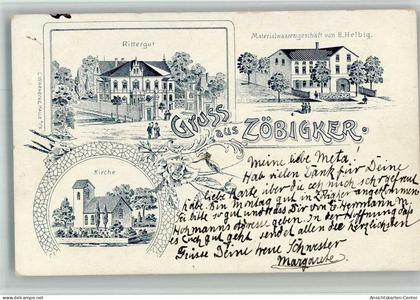 Rittergut
Materialwaarengeschäft von E. Helbig.
Gruss
aus ZÖBIGKER.
Kirche
Meine liebe Meta!
Hab vielen Dank für Deine
liebe Karte über die ich mich sehr gefreut
habe. Bin Montag gut in Zöbigker angekommen.
bitte so gut und lass Dir von E. Herrmann
Hofmanns Adresse geben. In der Hoffnung das
es Euch gut geht sendet allen die herzlichsten
Grüsse Deine treue Schwester
Margarete
www.ansichtskarten-center.de
Ansichtskarten-Center